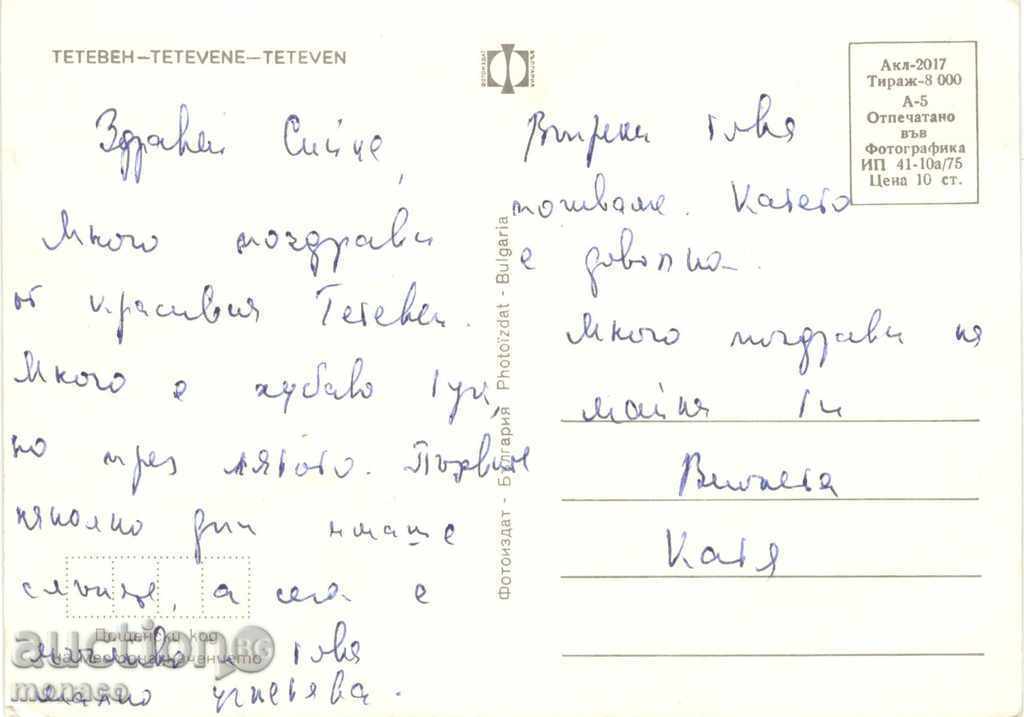 ТЕТЕВЕН—TETEVENE—TETEVEN
ФОТОИЗДАТ
БЪЛГАРИЯ
Акл-2017
Тираж-8 000
А-5
Отпечатано
във
Фотографика
ИП 41-10а/75
Цена 10 ст.
Здравей
Много поздрави
от красивия Тетевен.
Много е хубаво тук,
но през лятото. Първите
няколко дни имаше
слънце, а сега е
мъгливо. Това
малко угнетява.
Въпреки това
почиваме. Катето
е доволна.
Много поздрави на
майка ти
Виолета
Катя
Фотоиздат - България Photoizdat - Bulgaria
Пощенски код
на местоназначението
auction BG
monaco